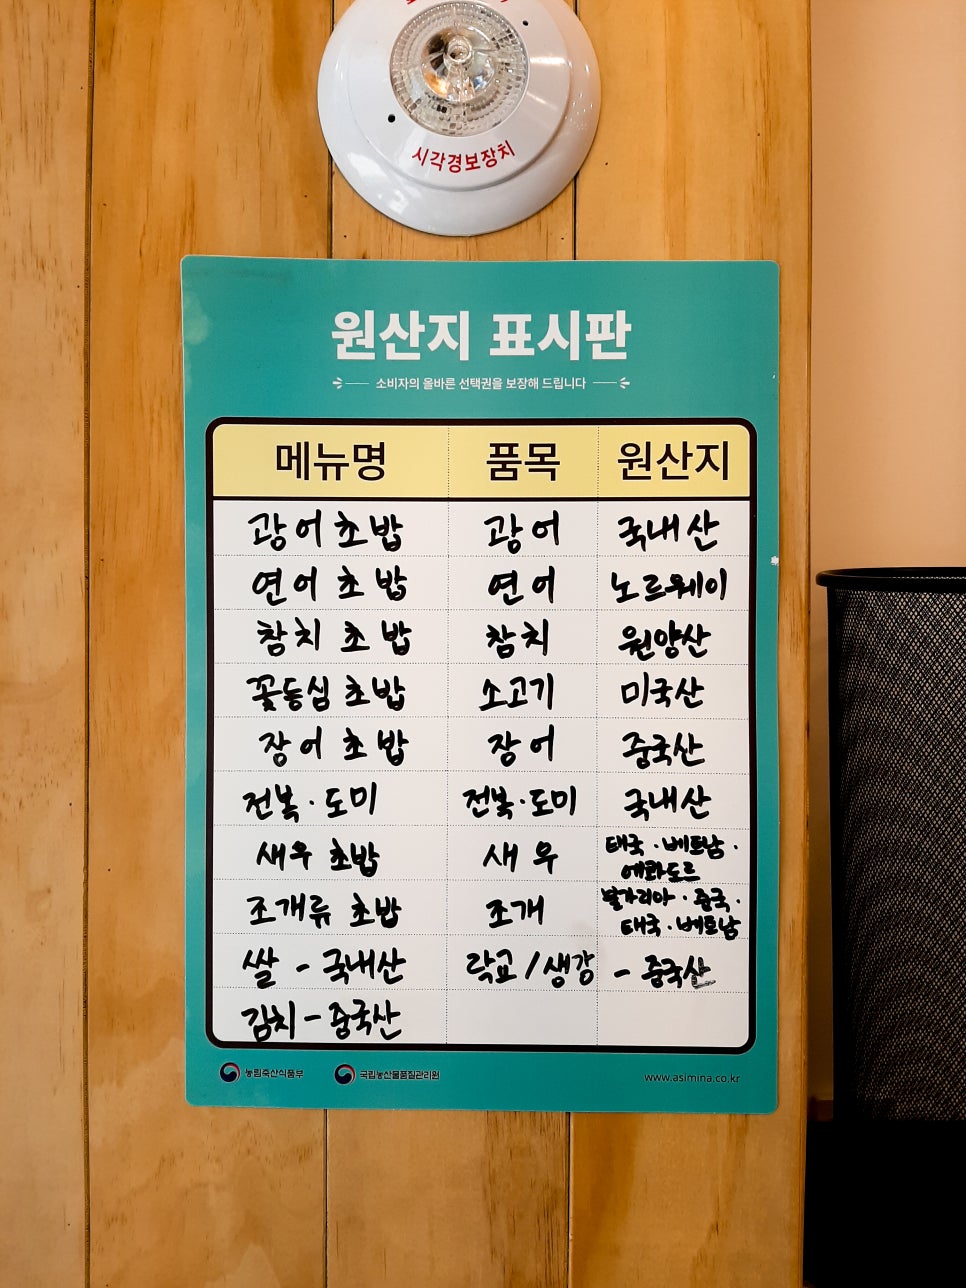 시각경보장치
원산지 표시판
소비자의 올바른 선택권을 보장해 드립니다
메뉴명 품목 원산지
광어초밥 광어 국내산
연어 초밥 연어 노르웨이
참치 초밥 참치 원양산
꽃등심 초밥 소고기 미국산
장어 초밥 장어 중국산
전복·도미 전복·도미 국내산
새우 초밥 새우 태국·베트남·
에콰도르
조개류 초밥 조개 불가리아·중국·
태국·베트남
쌀 - 국내산 락교/생강 - 중국산
김치 - 중국산
농림축산식품부 국립농산물품질관리원 www.asimina.co.kr